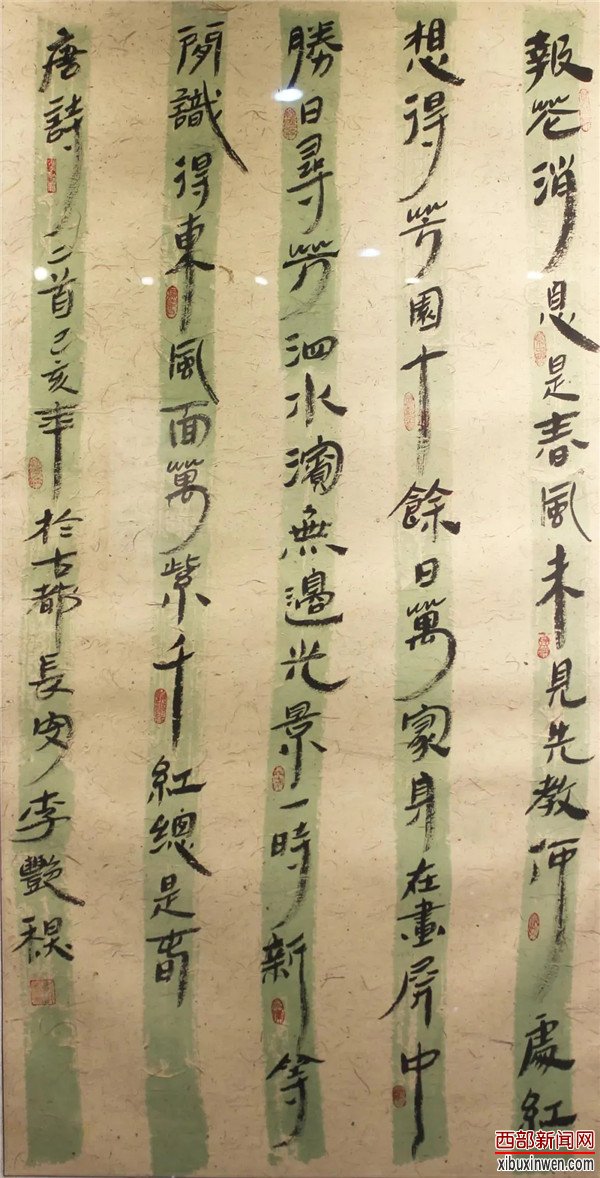 報花消息是春風未見先教何處紅
想得芳園十餘日萬家身在畫屏中
勝日尋芳泗水濱無邊光景一時新等
閒識得東風面萬紫千紅總是春
唐詩二首己亥年於古都長安李艷
西部新闻网
xibuxinwen.com